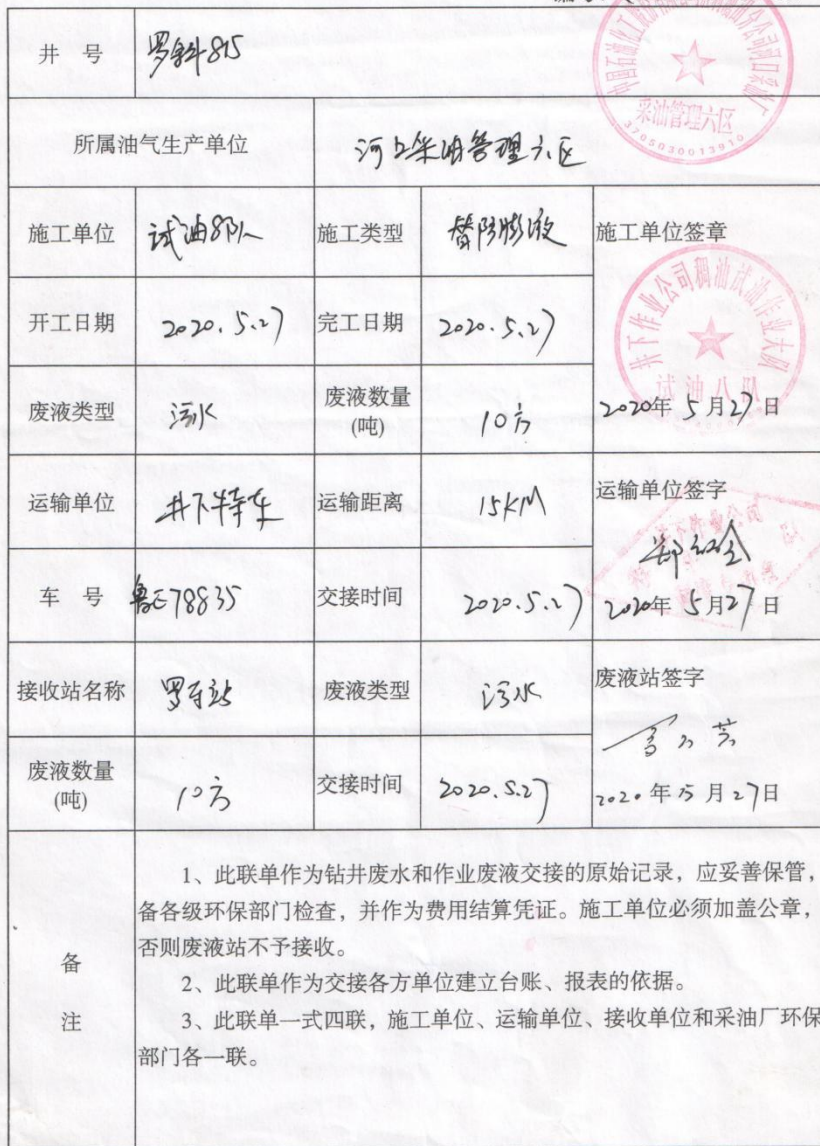 井 号 罗斜815
所属油气生产单位 河口采油管理六区
采油管理六区
3705030013910
施工单位 试油8队 施工类型 替防膨液 施工单位签章
井下作业公司稠油试油作业大队
试油八队
开工日期 2020.5.27 完工日期 2020.5.27
废液类型 污水 废液数量
(吨) 10方 2020年5月27日
运输单位 井下特车 运输距离 15KM 运输单位签字
车 号 鲁E78835 交接时间 2020.5.27 2020年5月27日
接收站名称 废液类型 污水 废液站签字
废液数量
(吨) 10方 交接时间 2020.5.27 2020年5月27日
备
注
1、此联单作为钻井废水和作业废液交接的原始记录，应妥善保管，
备各级环保部门检查，并作为费用结算凭证。施工单位必须加盖公章，
否则废液站不予接收。
2、此联单作为交接各方单位建立台账、报表的依据。
3、此联单一式四联，施工单位、运输单位、接收单位和采油厂环保
部门各一联。